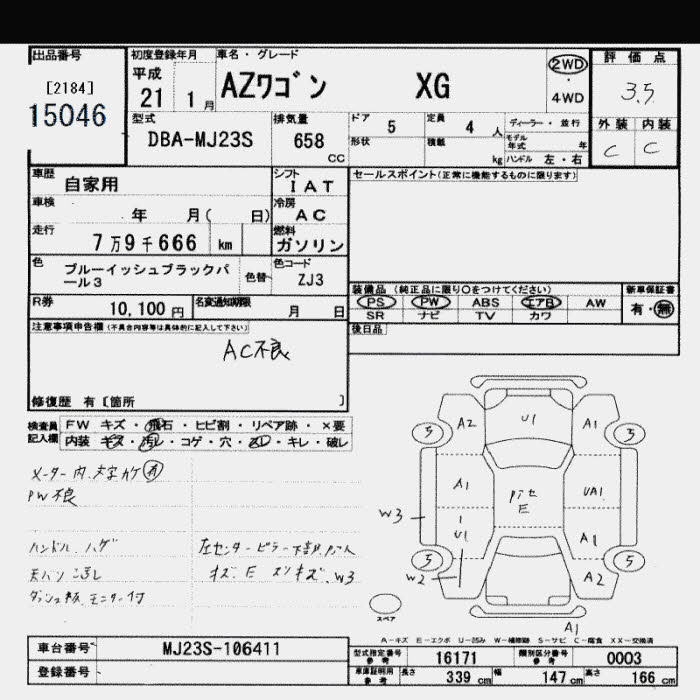 出品番号
[2184]
15046
初度登録年月
平成
21 1月
車名・グレード
AZワゴン XG
2WD
・
4WD
評価点
3.5
外装 内装
C C
型式
DBA-MJ23S
排気量
658
CC
ドア 5
形状
定員 4 人
積載 kg
ディーラー・並行
モデル年式 年
ハンドル 左・右
車歴
自家用
車検
年 月( 日)
走行
7万9千666 km
色
ブルーイッシュブラックパ
ール3
色替
シフト
IAT
冷房
AC
燃料
ガソリン
色コード
ZJ3
R券
10,100円
名変通知期限
月 日
セールスポイント(正常に機能するものに限ります)
装備品 (純正品に限り○をつけてください)
PS PW ABS エアB AW
SR ナビ TV カワ
新車保証書
有・無
後日品
注意事項申告欄(不具合内容等は具体的に記入して下さい)
AC不良
修復歴 有〔箇所 〕
検査員
記入欄
FW キズ・飛石・ヒビ割・リペア跡・×要
内装 キズ・汚レ・コゲ・穴・スレ・キレ・破レ
メーター内、文字カケ有
PW不良
ハンドル ハゲ
天バン
モニター付
左センターピラー下部
キズ、E
W3
A2 U1 A1
5 5
A1 UA1
E
W3
U1 A1
5 5
W2 A2
スペア
A1
A-キズ E-エクボ U-凹み W-補修跡 S-サビ C-腐食 XX-交換済
車台番号 MJ23S-106411
登録番号
型式指定番号 参考 16171
類別区分番号 参考 0003
車庫証明用 参考 長さ 339cm 幅 147cm 高さ 166cm